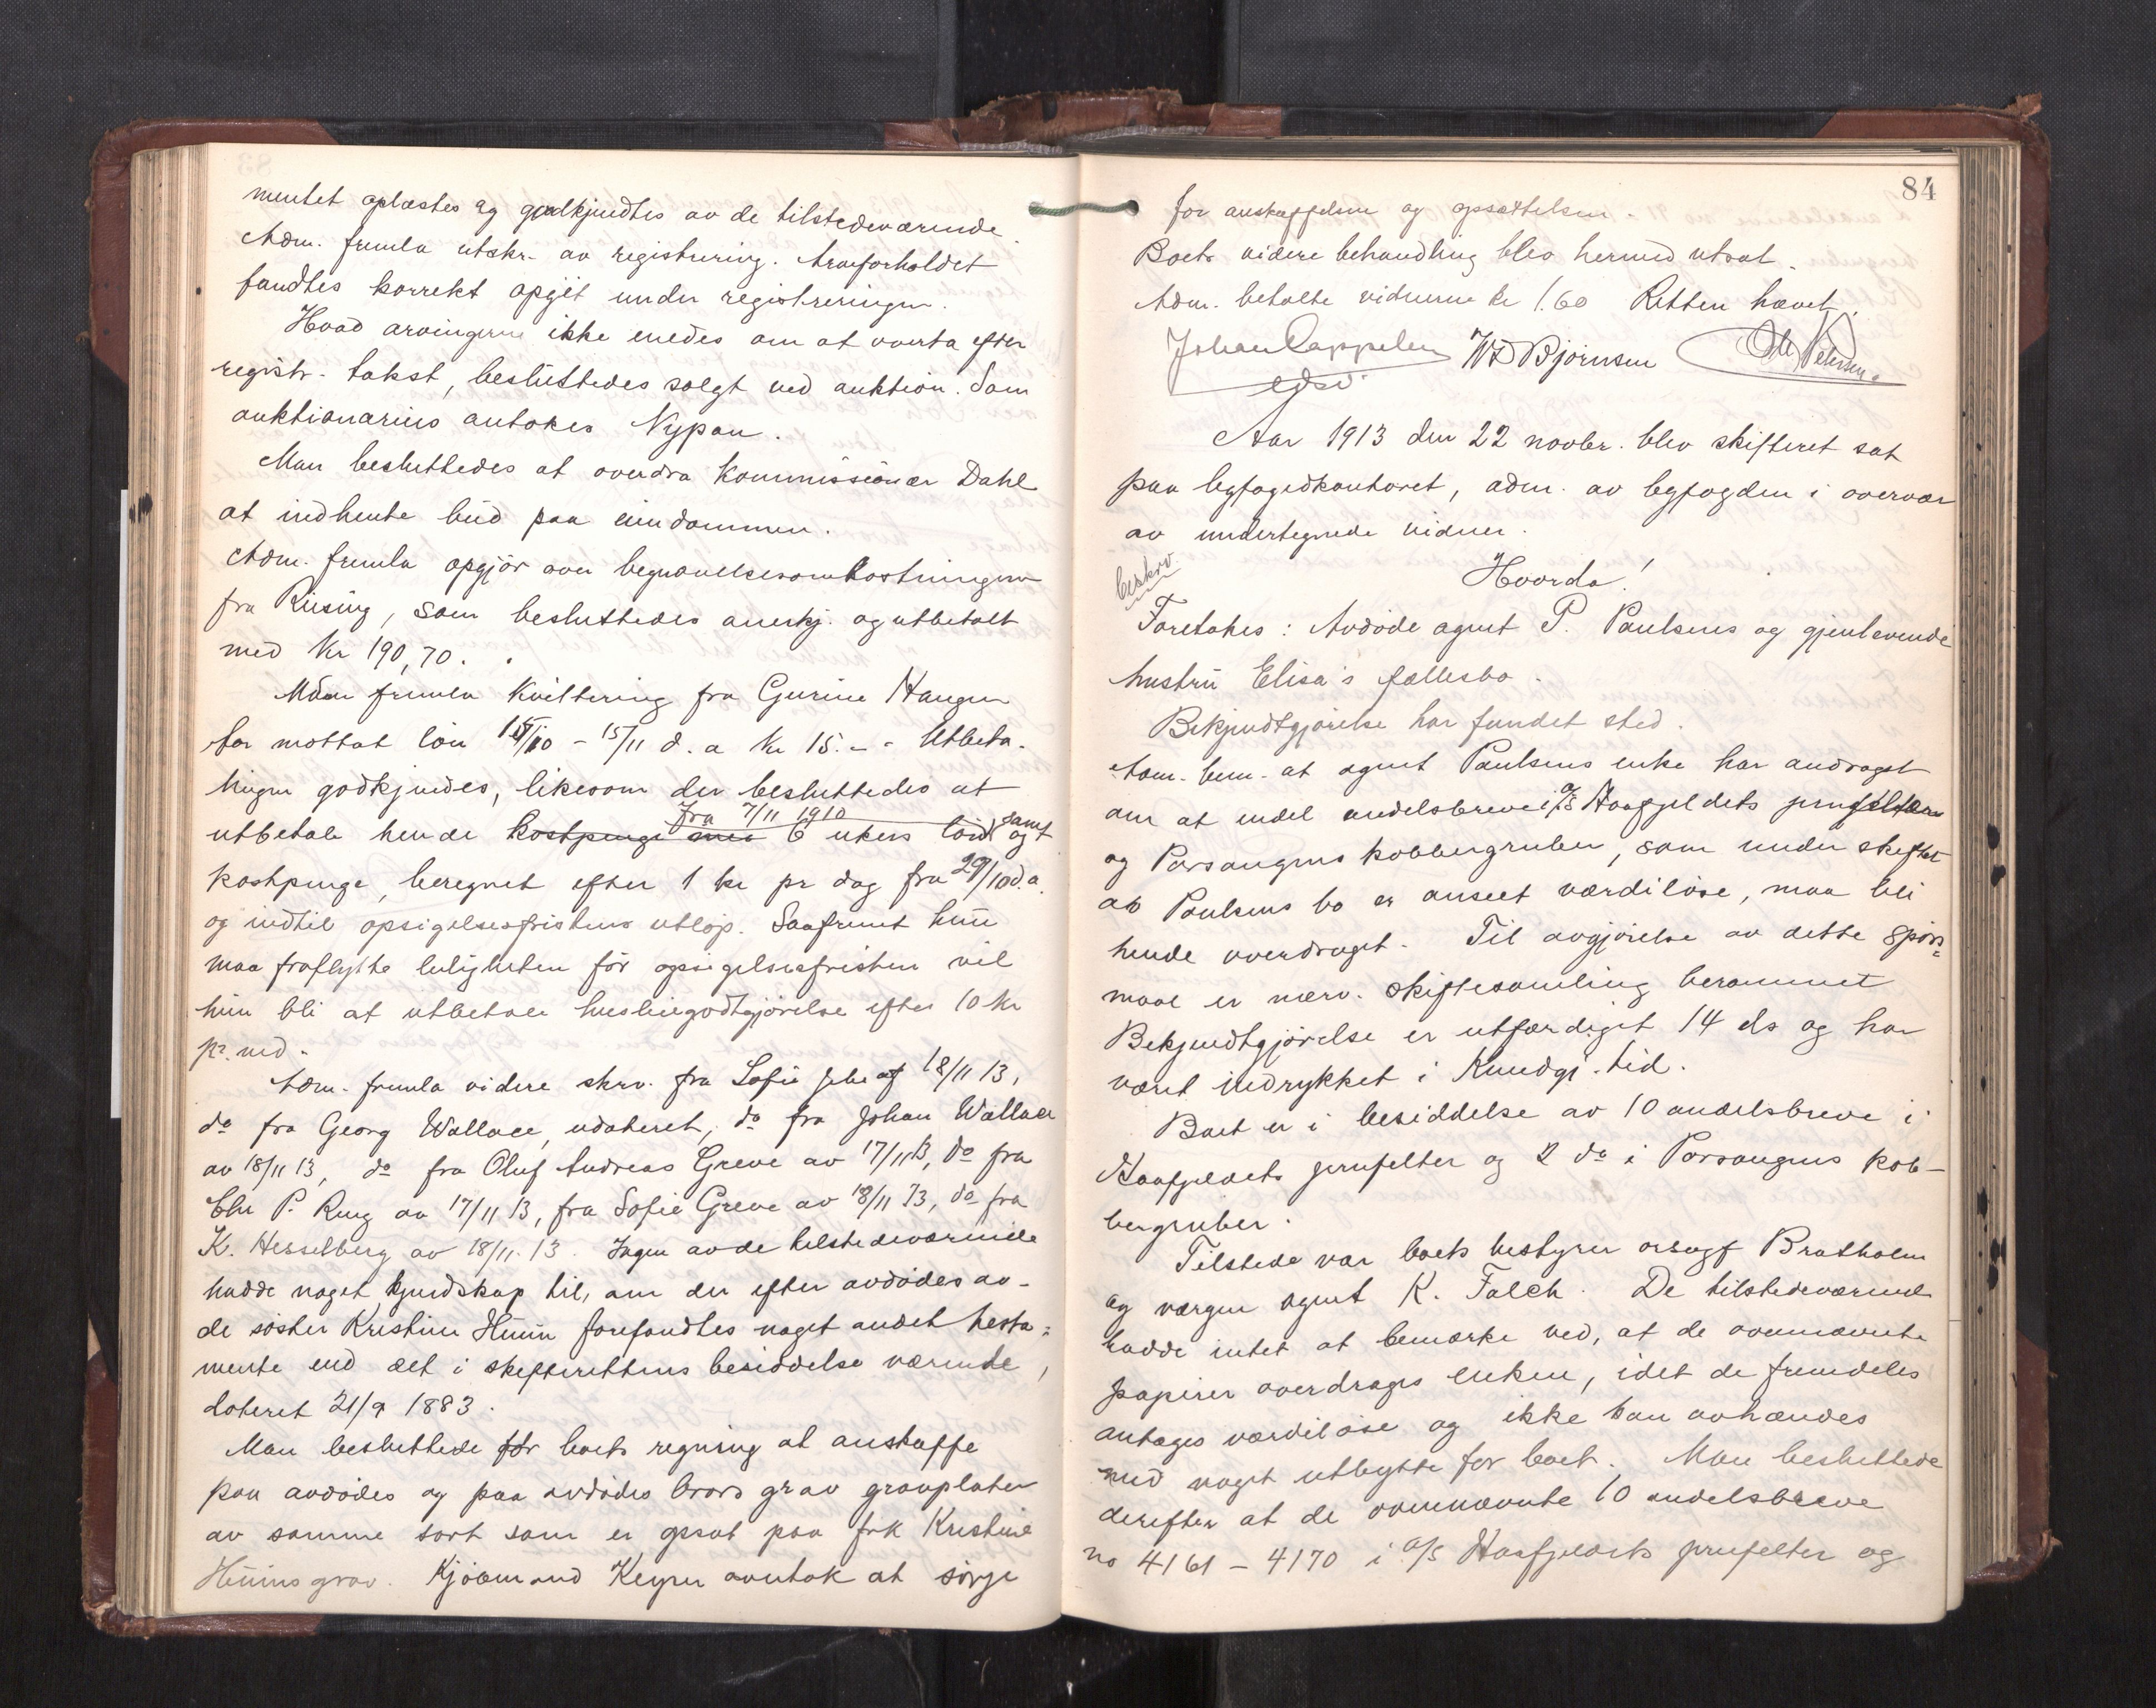 mentet oplæstes og godkjendtes av de tilstedeværende.
Adm. fremla utskr. av registrering. Arveforholdet
fandtes korrekt opgit under registreringen.
Hvad arvingerne ikke enedes om at overta efter
registr. takst, besluttedes solgt ved auktion. Som
auktionarius antokes Nypan.
Man besluttedes at overdra kommissionær Dahl
at indhente bud paa eiendommen.
Adm. fremla opgjör over begravelsesomkostningerne
fra Riising, som besluttedes anerkj. og utbetalt
med Kr 190,70.
Man fremla kvittering fra Gurine Haugen
for mottat lön 15/10 - 15/11 d. a Kr 15.-. Utbeta-
lingen godkjendes, likesom der besluttedes at
fra 7/11 1910
utbetale hende kostpenge 6 ukers lön samt
kostpenge, beregnet efter 1 kr pr dag fra 29/10 d. a.
og indtil opsigelsesfristens utlöp. Saafremt hun
maa fraflytte leiligheten för opsigelsesfristen vil
hun bli at utbetale husleiegodtgjörelse efter 10 kr
pr. md.
Adm. fremla videre skrv. fra Sofie 18/11 13,
do fra Georg Wallace, udateret, do fra Johan Wallace
av 18/11 13, do fra Oluf Andreas Greve av 17/11 13, do fra
Chr P. Ring av 17/11 13, fra Sofie Greve av 18/11 13, do fra
K. Hesselberg av 18/11. 13. Ingen av de tilstedeværende
hadde noget kjendskap til, om der efter avdödes av-
de söster Kristine Huun forefandtes noget andet testa=
mente end det i skifterettens besiddelse værende,
dateret 21/9 1883.
Man besluttede for boets regning at anskaffe
paa avdödes og paa avdödes brors grav gravplater
av samme sort som er opsat paa frk Kristine
Huuns grav. Kjöbmand Keyser overtok at sörge
84
for anskaffelsen og opsættelsen.
Boets videre behandling blev hermed utsat.
Adm. betalte vidnerne kr 1.60 Retten hævet.
Johan Cappelen
W D Björnsen
Ole Petersen.
Aar 1913 den 22 novbr. blev skifteret sat
paa byfogedkontoret, adm. av byfogden i overvær
av undertegnede vidner.
Hvorda!
beskrv
Foretokes: Avdöde agent P. Paulsens og gjenlevende
hustru Elisa's fællesbo.
Bekjendtgjörelse har fundet sted.
Adm. bem. at agent Paulsens enke har andraget
om at endel andelsbreve i A/S Haafjeldets jernfelter
og Porsangens kobbergruber, som under skiftet
av Paulsens bo er anseet værdilöse, maa bli
hende overdraget. Til avgjörelse av dette spörs=
maal er nærv. skiftesamling berammet
Bekjendtgjörelse er utfærdiget 14 ds og har
været indrykket i Kundgj. tid.
Boet er i besiddelse av 10 andelsbreve i
Haafjeldets jernfelter og 2 do i Porsangens kob-
bergruber.
Tilstede var boets bestyrer orsagf Bratholm
og vergen agent K. Falch. De tilstedeværende
hadde intet at bemerke ved, at de ovennævnte
papirer overdrages enken, idet de fremdeles
antages værdilöse og ikke kan avhændes
med noget utbytte for boet. Man besluttede
derefter at de ovennævnte 10 andelsbreve
no 4161 - 4170 i A/S Haafjeldets jernfelter og